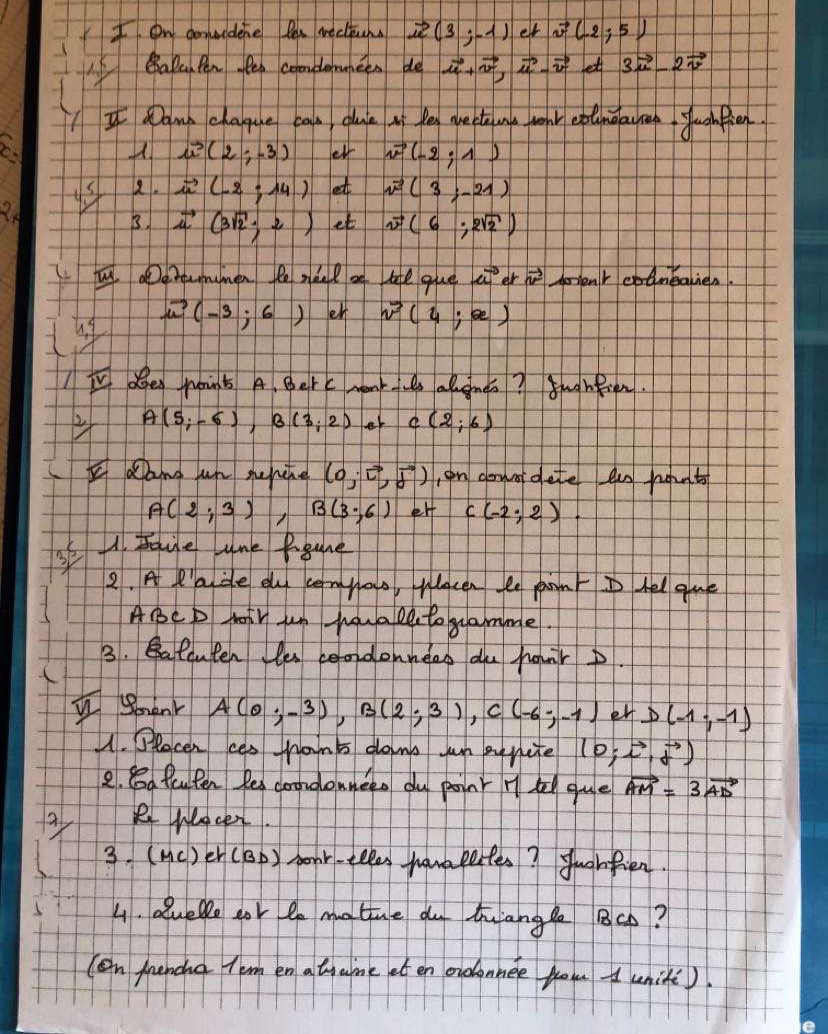 I. On considère les vecteurs u⃗(3 ; -1) et v⃗(-2 ; 5)
1,5/ Calculer les coordonnées de u⃗+v⃗, u⃗-v⃗ et 3u⃗-2v⃗
II Dans chaque cas, dire si les vecteurs sont colinéaires. Justifier.
1. u⃗(2 ; -3) et v⃗(-2 ; 1)
4,5/ 2. u⃗(-2 ; 14) et v⃗(3 ; -21)
3. u⃗(3√2 ; 2) et v⃗(6 ; 2√2)
III Déterminer le réel x tel que u⃗ et v⃗ soient colinéaires.
1,5/ u⃗(-3 ; 6) et v⃗(4 ; x)
IV Les points A, B et C sont-ils alignés ? Justifier.
2/ A(5 ; -6), B(3 ; 2) et C(2 ; 6)
V Dans un repère (O ; i⃗, j⃗), on considère les points
A(2 ; 3), B(3 ; 6) et C(-2 ; 2).
3,5/ 1. Faire une figure
2. A l'aide du compas, placer le point D tel que
ABCD soit un parallélogramme.
3. Calculer les coordonnées du point D.
VI Soient A(0 ; -3), B(2 ; 3), C(-6 ; -1) et D(-1 ; -1)
1. Placer ces points dans un repère (O ; i⃗, j⃗)
2. Calculer les coordonnées du point M tel que AM⃗ = 3AD⃗
7/ Le placer.
3. (MC) et (BD) sont-elles parallèles ? Justifier.
4. Quelle est la nature du triangle BCD ?
(On prendra 1cm en abscisse et en ordonnée pour 1 unité).